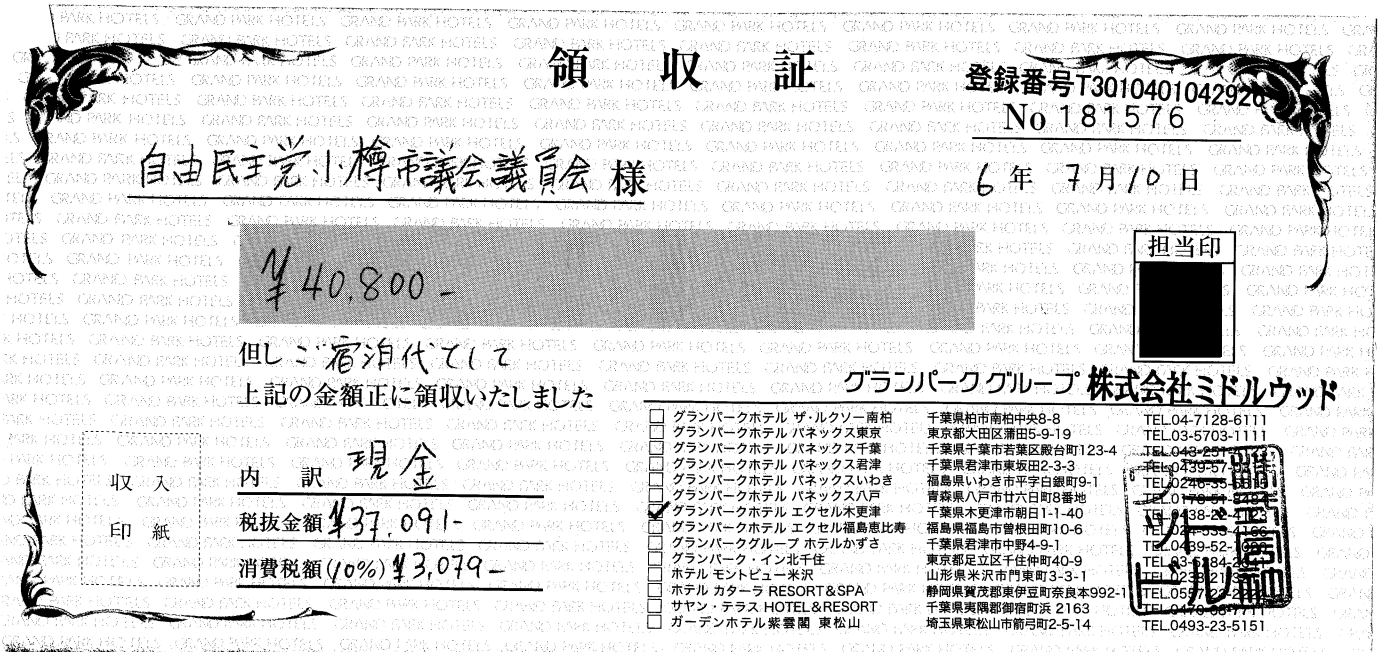 領収証
登録番号T3010401042920
No 181576
自由民主党小樽市議会議員会 様
6年 7月10日
¥40,800-
担当印
但し ご宿泊代として
上記の金額正に領収いたしました
グランパークグループ 株式会社ミドルウッド
収入
印紙
内訳 現金
税抜金額 ¥37,091-
消費税額(10%) ¥3,079-
グランパークホテル ザ・ルクソー南柏 千葉県柏市南柏中央8-8 TEL.04-7128-6111
グランパークホテル パネックス東京 東京都大田区蒲田5-9-19 TEL.03-5703-1111
グランパークホテル パネックス千葉 千葉県千葉市若葉区殿台町123-4 TEL.043-251-
グランパークホテル パネックス君津 千葉県君津市東坂田2-3-3 TEL.0439-57-
グランパークホテル パネックスいわき 福島県いわき市平字白銀町9-1 TEL.0246-35-
グランパークホテル パネックス八戸 青森県八戸市廿六日町8番地 TEL.0178-51-
✓ グランパークホテル エクセル木更津 千葉県木更津市朝日1-1-40 TEL.0438-22-
グランパークホテル エクセル福島恵比寿 福島県福島市曽根田町10-6 TEL.024-533-4166
グランパークグループ ホテルかずさ 千葉県君津市中野4-9-1 TEL.0439-52-
グランパーク・イン北千住 東京都足立区千住仲町40-9 TEL.03-5284-
ホテル モントビュー米沢 山形県米沢市門東町3-3-1 TEL.0238-21-
ホテル カターラ RESORT&SPA 静岡県賀茂郡東伊豆町奈良本992-1 TEL.0557-
サヤン・テラス HOTEL&RESORT 千葉県夷隅郡御宿町浜 2163 TEL.0470-68-7711
ガーデンホテル紫雲閣 東松山 埼玉県東松山市箭弓町2-5-14 TEL.0493-23-5151